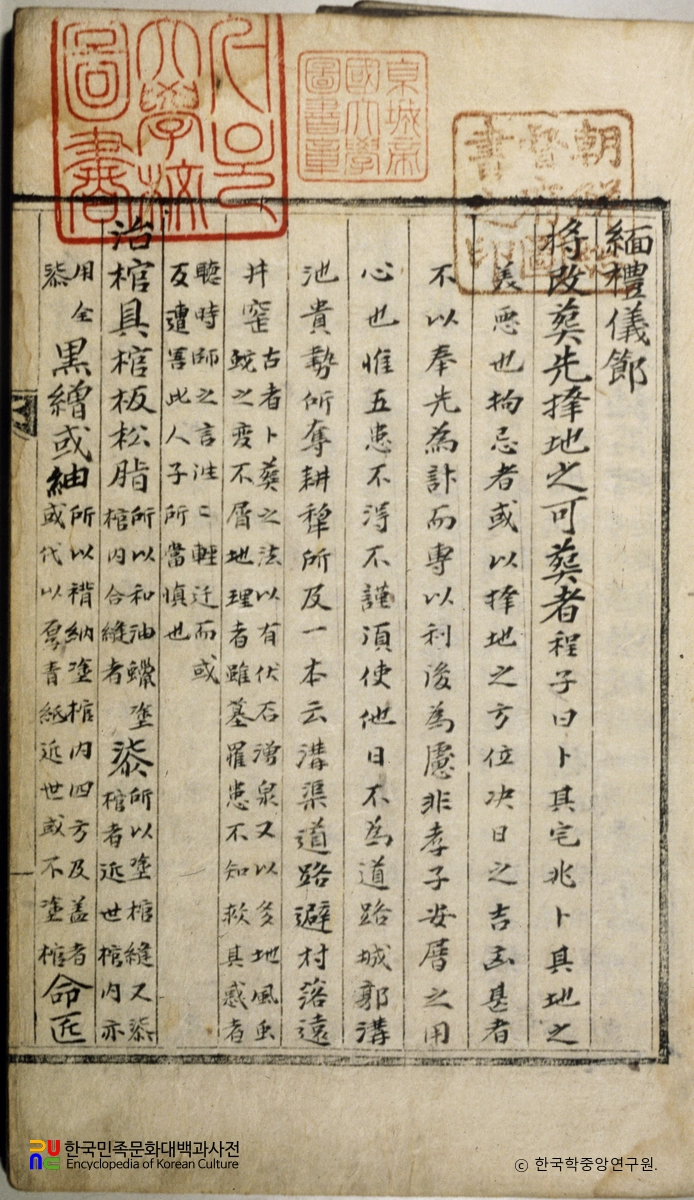 緬禮儀節
將改葬先擇地之可葬者程子曰卜其宅兆卜其地之
美惡也拘忌者或以擇地之方位决日之吉凶甚者
不以奉先為計而專以利後為慮非孝子安厝之用
心也惟五患不得不謹湏使他日不為道路城郭溝
池貴勢所奪耕犂所及一本云溝渠道路避村落遠
井窑
古者卜葬之法以有伏石湧泉又以多地風虫
蛟之变不厝地理者雖墓罹患不知救其惑者
聽時師之言往〻輕迁而或
反遭害此人子所當慎也
治棺具棺板松脂
所以和油蠟塗
棺內合縫者
柒
所以塗棺縫又柒
棺者近世棺內亦
用全
柒
黑繒或紬
所以褙納塗棺內四方及盖者
或代以厚青紙近世或不塗棺
命匠
朝鮮總督府圖書之印
京城帝國大學圖書章
서울大學校圖書
한국민족문화대백과사전
Encyclopedia of Korean Culture
© 한국학중앙연구원.